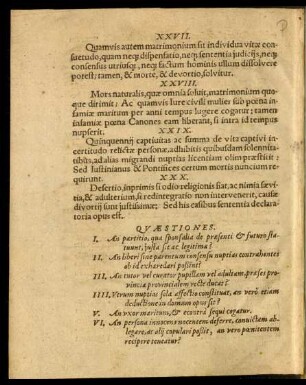 XXVII.
Quamvis autem matrimonium sit individua vitæ con-
suetudo, quam neq; dispensatio, neq; sententia judicijs, neq;
consensus utriusq;, neq; factum hominis ullum dissolvere
potest; tamen, & morte, & devortio, solvitur.
XXVIII.
Mors naturalis, quæ omnia solvit, matrimonium quo-
que dirimit: Ac quamvis Iure civili mulier sub pœna in-
famiæ maritum per anni tempus lugere cogatur; tamen
infamiæ pœna Canones eam liberant, si intra id tempus
nupserit.
XXIX.
Quinquennij captivitas ac summa de vita captivi in-
certitudo relictæ personæ, adhibitis quibusdam solennita-
tibus, ad alias migrandi nuptias licentiam olim præstitit:
Sed Iustinianus & Pontifices certum mortis nuncium re-
quirunt.
XXX.
Desertio, inprimis si odio religionis fiat, ac nimia sævi-
tia, & adulterium, si redintegratio non intervenerit, causæ
divortij sunt justissimæ: Sed his casibus sententia declara-
toria opus est.
QVÆSTIONES.
I. An partitio, quâ sponsalia de præsenti & futuro sta-
tuunt, justa sit ac legitima?
II. An liberi sine parentum consensu nuptias contrahentes
ab ijs exhæredari possint?
III. An tutor vel curator pupillam vel adultam, præses pro-
vinciæ provincialem rectè ducat?
IIII. Vtrum nuptias sola affectio constituat, an verò etiam
deductione in domum opus sit?
V. An uxor maritum, & econtrà sequi cogatur.
VI. An persona innocens nocentem deserere, convictam ab-
legare, ac alij copulari possit, an verò pœnitentem
recipere teneatur?